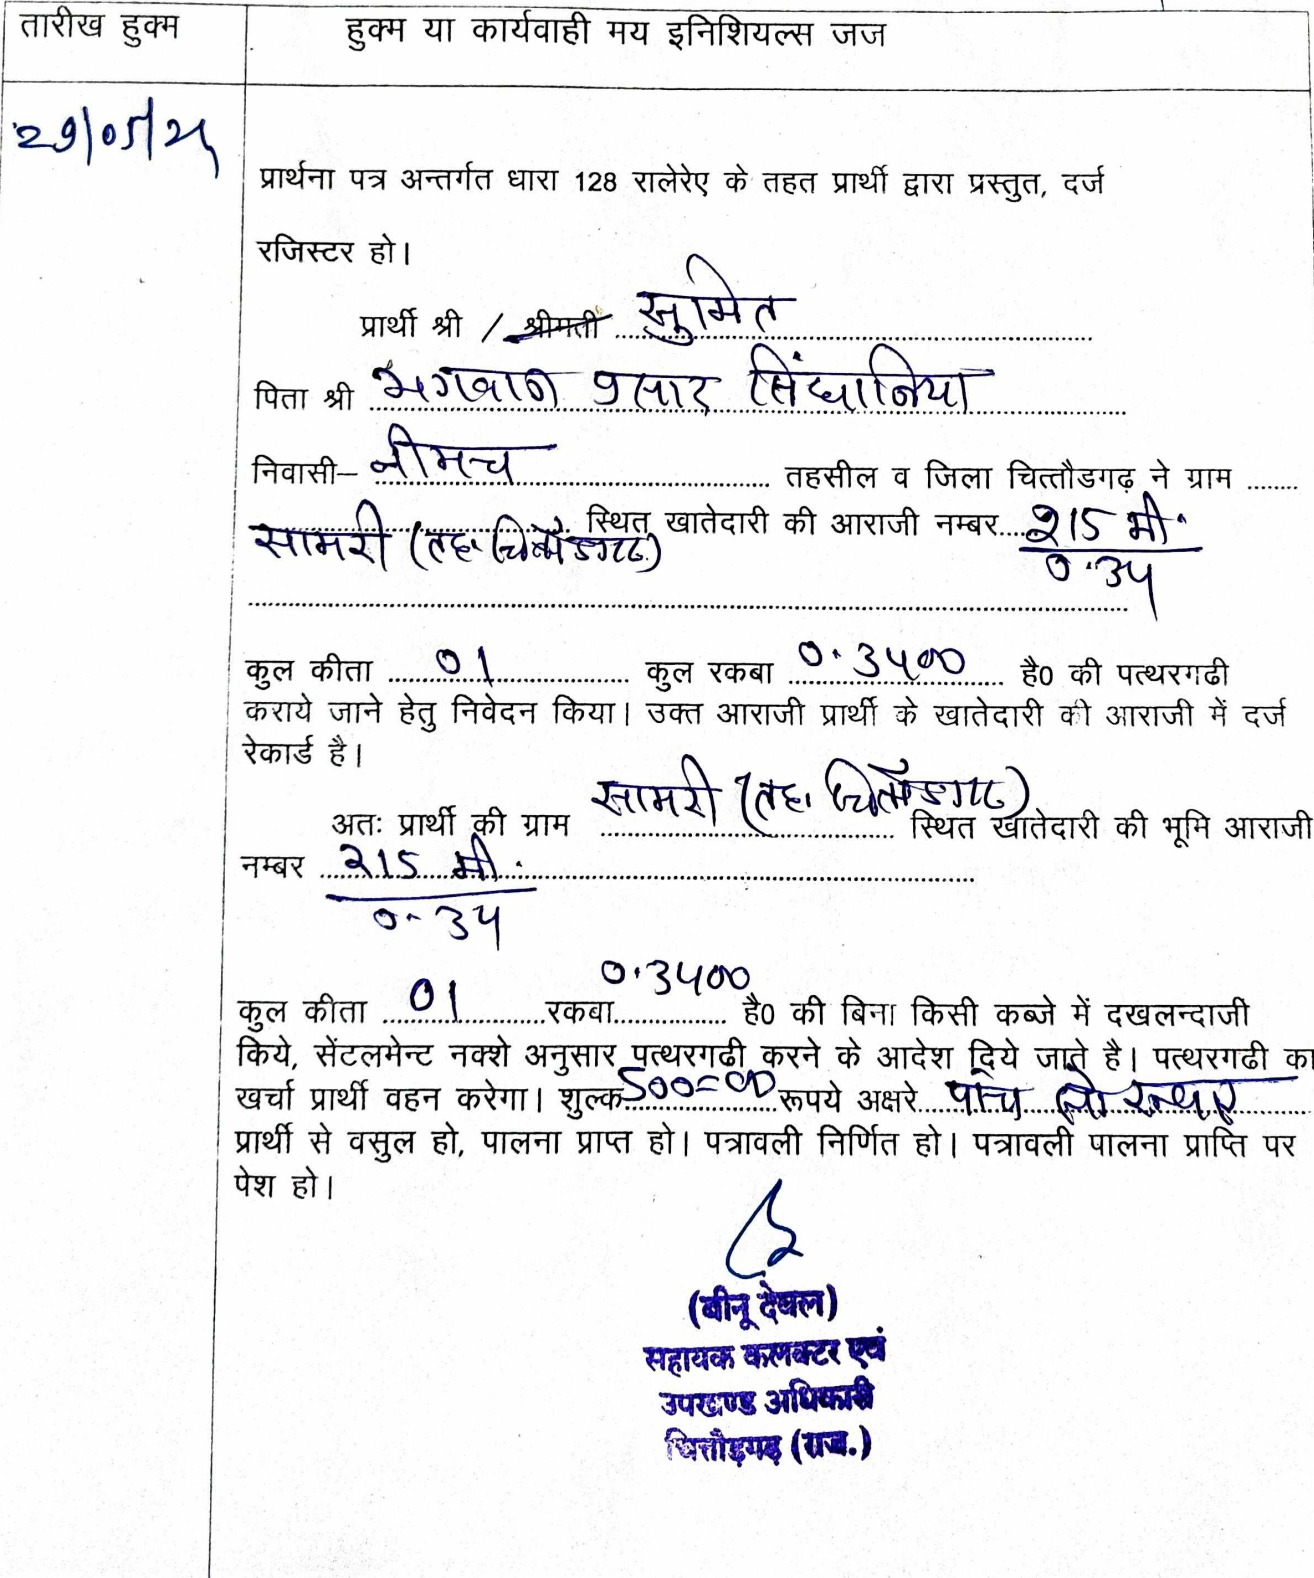 तारीख हुक्म
हुक्म या कार्यवाही मय इनिशियल्स जज
29/05/25
प्रार्थना पत्र अन्तर्गत धारा 128 रालेरेए के तहत प्रार्थी द्वारा प्रस्तुत, दर्ज
रजिस्टर हो।
प्रार्थी श्री / श्रीमती सुमित
पिता श्री भगवान प्रसाद सिंघानिया
निवासी– नीमच तहसील व जिला चित्तौडगढ़ ने ग्राम ........
सामरी (तह. चित्तौडगढ) स्थित खातेदारी की आराजी नम्बर 215 मी.
0.34
कुल कीता 01 कुल रकबा 0.3400 है0 की पत्थरगढी
कराये जाने हेतु निवेदन किया। उक्त आराजी प्रार्थी के खातेदारी की आराजी में दर्ज
रेकार्ड है।
अतः प्रार्थी की ग्राम सामरी (तह. चित्तौडगढ) स्थित खातेदारी की भूमि आराजी
नम्बर 215 मी.
0.34
कुल कीता 01 रकबा 0.3400 है0 की बिना किसी कब्जे में दखलन्दाजी
किये, सेंटलमेन्ट नक्शे अनुसार पत्थरगढी करने के आदेश दिये जाते है। पत्थरगढी का
खर्चा प्रार्थी वहन करेगा। शुल्क 500=00 रूपये अक्षरे पांच सो रूपए
प्रार्थी से वसुल हो, पालना प्राप्त हो। पत्रावली निर्णित हो। पत्रावली पालना प्राप्ति पर
पेश हो।
(बीनू देवल)
सहायक कलक्टर एवं
उपखण्ड अधिकारी
चित्तौड़गढ़ (राज.)